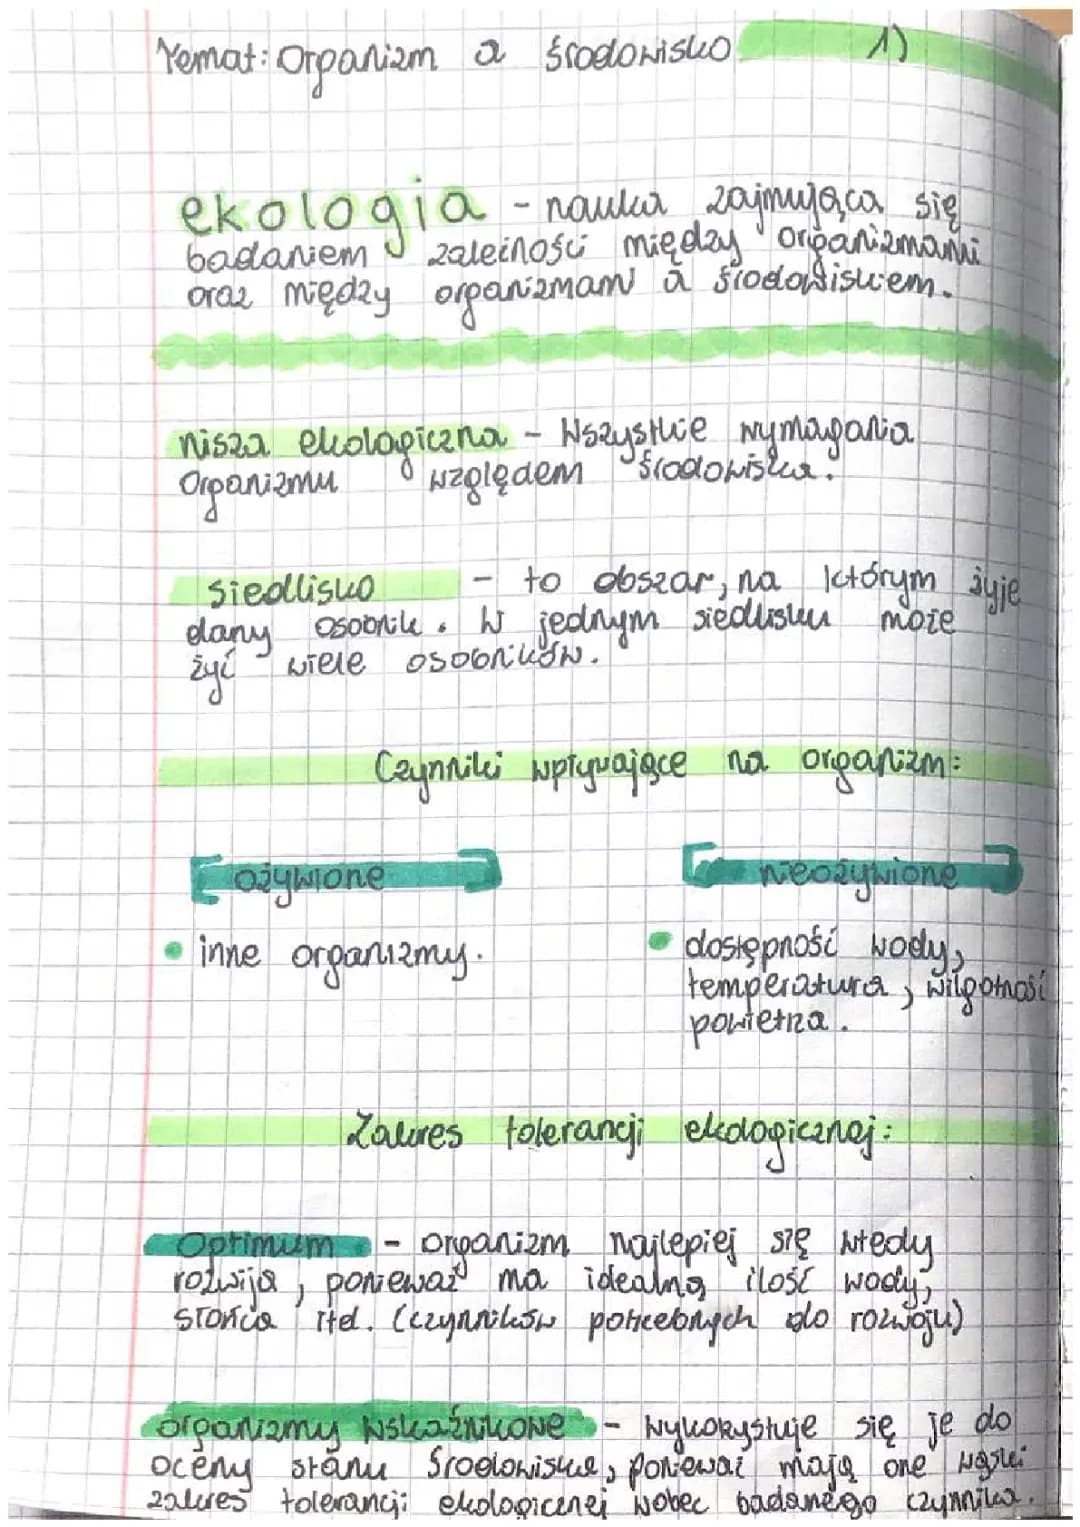 Temat: Organizm a środowisko. 1)
ekologia - nauka zajmująca się
badaniem zależności między organizmami
oraz między organizmami a środowiskiem.
nisza ekologiczna - Wszystkie wymagania
Organizmu względem środowiska.
siedlisko - to obszar, na którym żyje
dany osobnik. W jednym siedlisku może
żyć wiele osobników.
Czynniki wpływające na organizm:
ożywione nieożywione
• inne organizmy. • dostępność wody,
temperatura, wilgotność
powietrza.
Zakres tolerancji ekologicznej:
Optimum - organizm najlepiej się wtedy
rozwija, ponieważ ma idealną ilość wody,
słońca itd. (czynników potrzebnych do rozwoju)
organizmy wskaźnikowe - wykorzystuje się je do
oceny stanu środowiska, ponieważ mają one wąski
zakres tolerancji ekologicznej wobec badanego czynnika.